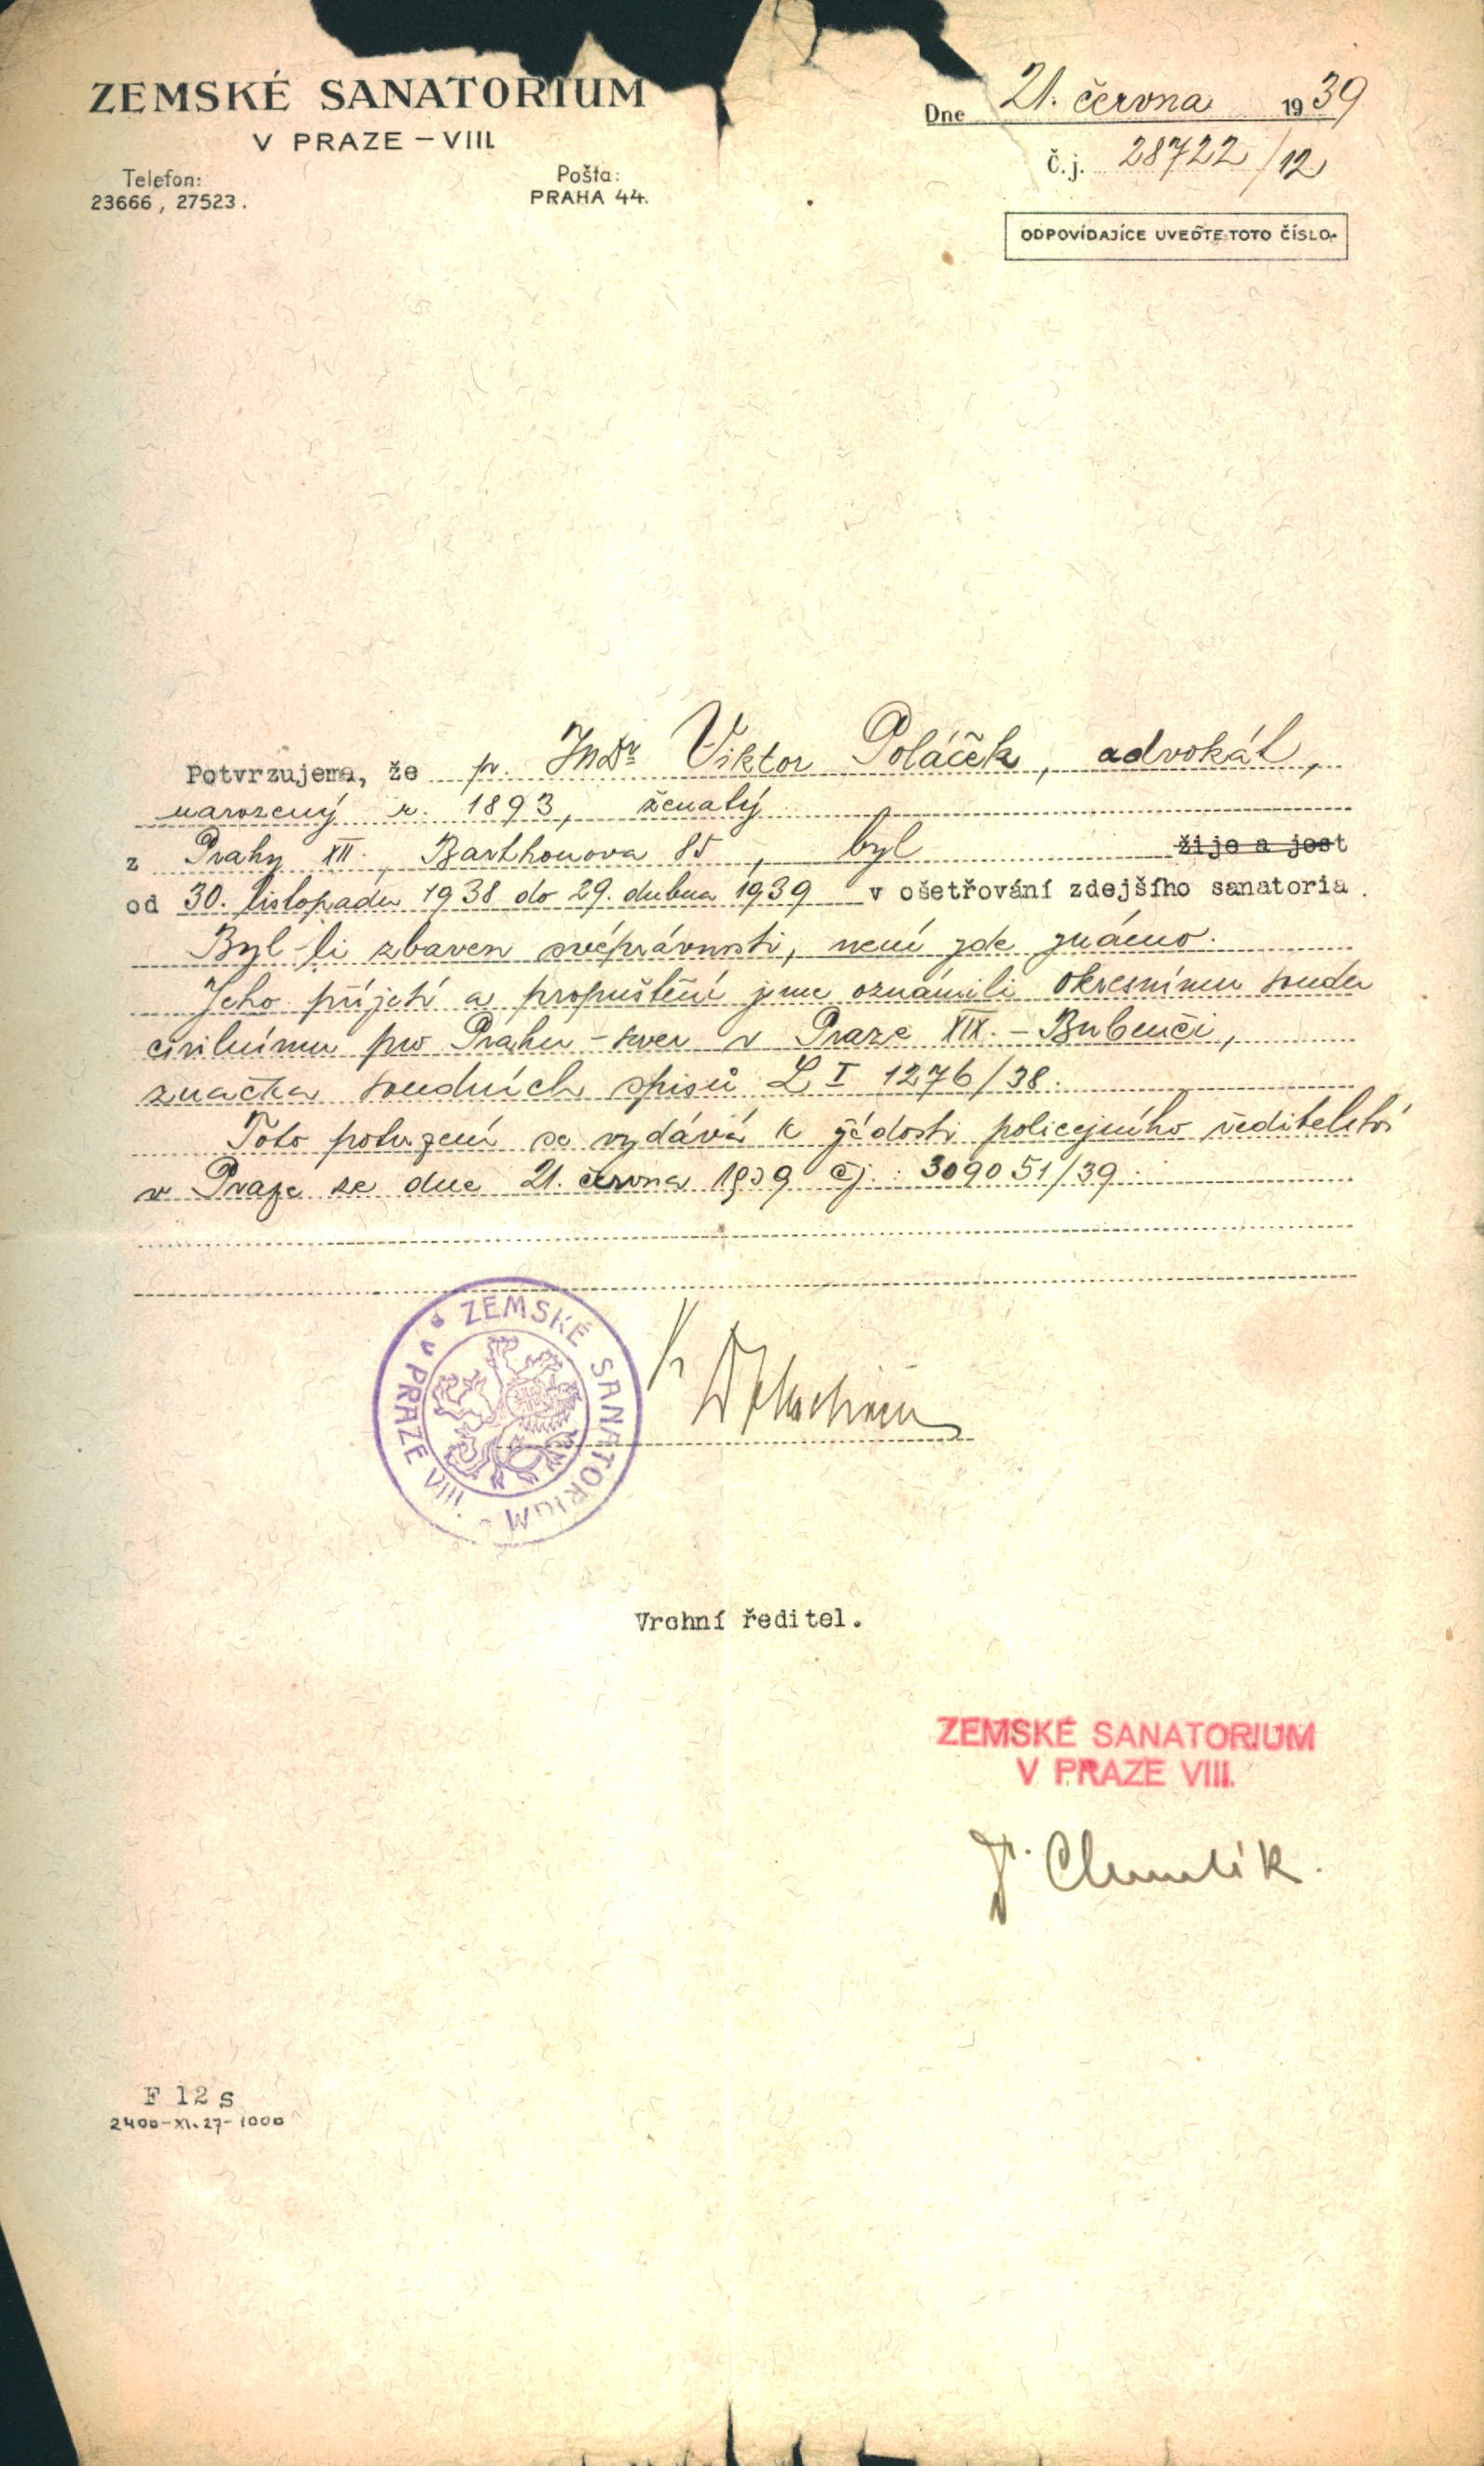 ZEMSKÉ SANATORIUM
V PRAZE – VIII.
Telefon:
23666, 27523.
Pošta:
PRAHA 44.
Dne 21. června 1939
Č. j. 28722/12
ODPOVÍDAJÍCE UVEĎTE TOTO ČÍSLO.
Potvrzujeme, že p. JUDr Viktor Poláček, advokát,
narozený r. 1893, ženatý
z Prahy XII., Barthonova 85, byl žije a jest
od 30. listopadu 1938 do 29. dubna 1939 v ošetřování zdejšího sanatoria.
Byl-li zbaven svéprávnosti, není zde známo.
Jeho přijetí a propuštění jsme oznámili okresnímu soudu
civilnímu pro Prahu-sever v Praze XIX. - Bubenči,
značka soudních spisů L I 1276/38.
Toto potvrzení se vydává k žádosti policejního ředitelství
v Praze ze dne 21. června 1939 čj.: 309051/39.
ZEMSKÉ SANATORIUM
v PRAZE VIII.
Vrchní ředitel.
ZEMSKÉ SANATORIUM
V PRAZE VIII.
F 12 s
2400-XI.27-1000